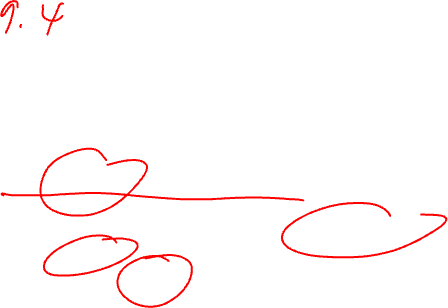 9. 4